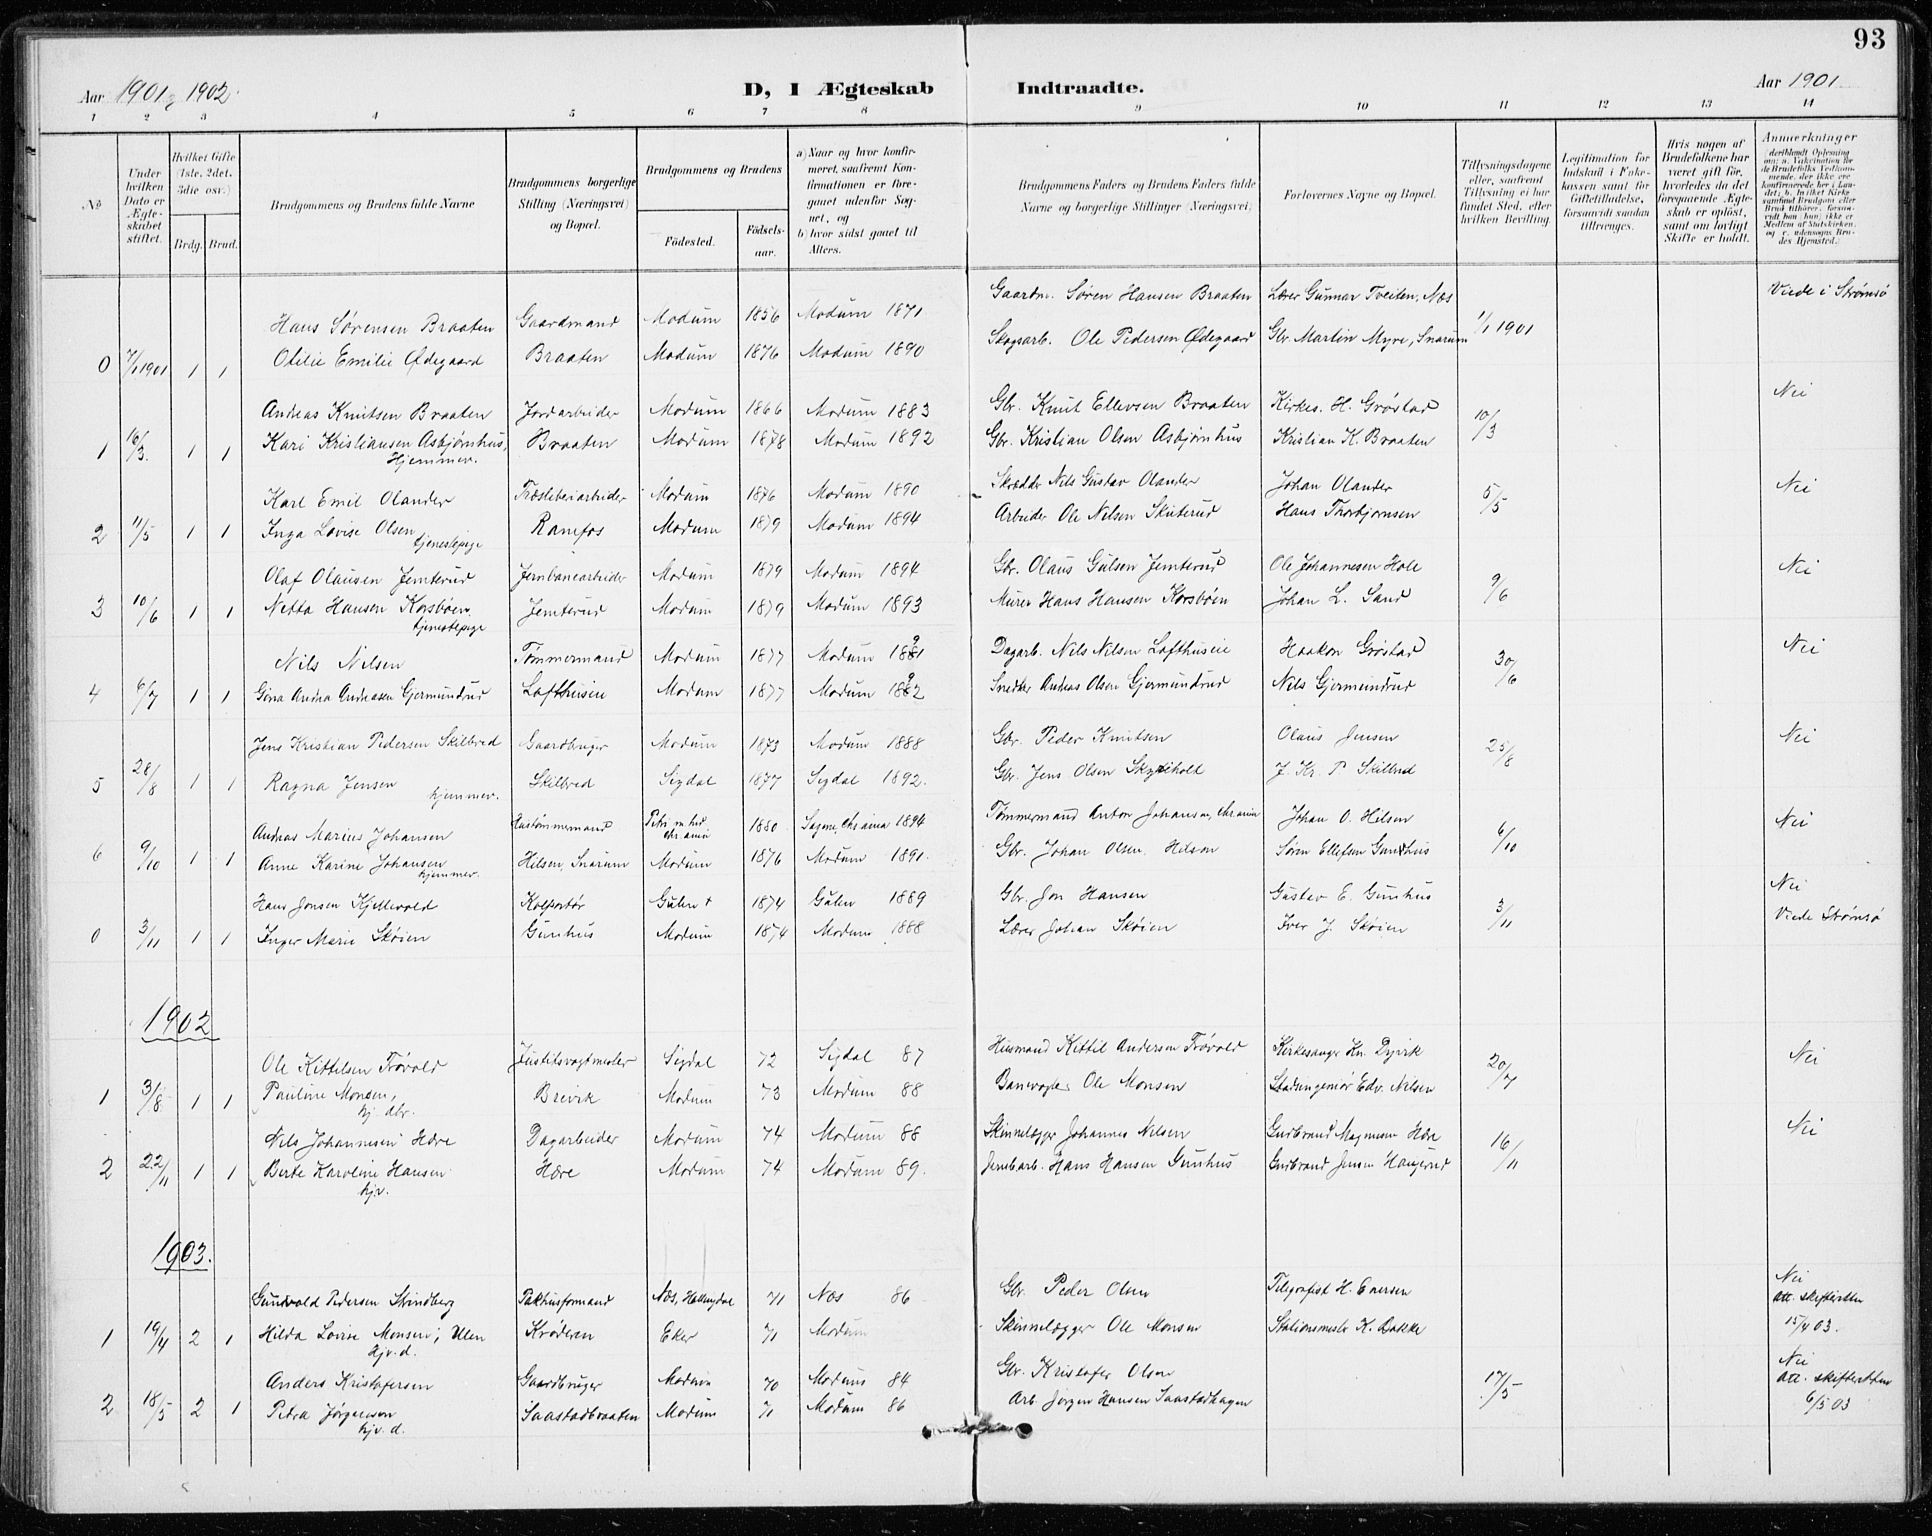 93
Aar 1901 & 1902. D, I Ægteskab Indtraadte. Aar 1901
1 2 3 4 5 6 7 8 9 10 11 12 13 14
No
Under hvilken Dato er Ægteskabet stiftet.
Hvilket Gifte (1ste, 2det, 3die osv.)
Brdg. Brud.
Brudgommens og Brudens fulde Navne
Brudgommens borgerlige Stilling (Næringsvei) og Bopæl.
Brudgommens og Brudens
Fødested. Fødselsaar.
a) Naar og hvor konfirmeret, saafremt Konfirmationen er foregaaet udenfor Sognet, og
b) hvor sidst gaaet til Alters.
Brudgommens Faders og Brudens Faders fulde Navne og borgerlige Stillinger (Næringsvei)
Forlovernes Navne og Bopæl.
Tillysningsdagene eller, saafremt Tillysning ei har fundet Sted, efter hvilken Bevilling.
Legitimation for Indskud i Enkekassen samt for Giftetilladelse, forsaavidt saadan tiltrænges.
Hvis nogen af Brudefolkene har været gift før, hvorledes da det foregaaende Ægteskab er opløst, samt om lovligt Skifte er holdt.
Anmærkninger
Hans Sørensen Braaten Gaardmand Modum 1856 Modum 1871 Gaardm. Søren Hansen Braaten Lærer Gunnar Tveiten, Næs 1/1 1901 Viede i Strømsø
0 7/1 1901 1 1 Otilie Emilie Ødegaard Braaten Modum 1876 Modum 1890 Skogsarb. Ole Pedersen Ødegaard Gbr. Martin Myre, Snarum
Andreas Knutsen Braaten Jordarbeider Modum 1866 Modum 1883 Gbr. Knut Ellevsen Braaten Kirkes. H. Grøstad 10/3 Nei
1 16/3. 1 1 Kari Kristiansen Asbjørnhus, Braaten Modum 1878 Modum 1892 Gbr. Kristian Olsen Asbjørnhus Kristian K. Braaten
Hjemmev.
Karl Emil Olander Træsliberiarbeider Modum 1876 Modum 1890 Skrædder Nils Gustav Olander Johan Olander 5/5 Nei
2 11/5 1 1 Inga Lovise Olsen Ramfos Modum 1879 Modum 1894 Arbeider Ole Nilsen Skuterud Hans Thorbjørnsen
tjenestepige
Olaf Olausen Jemterud Jernbanearbeider Modum 1879 Modum 1894 Gbr. Olaus Gulsen Jemterud Ole Johannesen Hole 9/6 Nei
3 10/6 1 1 Netta Hansen Korsbøen, Jemterud Modum 1879 Modum 1893 Murer Hans Hansen Korsbøen Johan L. Sand
tjenestepige
Nils Nilsen Tømmermand Modum 1877 Modum 1891 Dagarb. Nils Nilsen Lofthuseie Haakon Grøstad 30/6 Nei
4 6/7 1 1 Gina Andrea Andreasen Gjermundrud Lofthuseie Modum 1877 Modum 1892 Snedker Andreas Olsen Gjermundrud Nils Gjermundrud
Jens Kristian Pedersen Skilbred Gaardbruger Modum 1873 Modum 1888 Gbr. Peder Knutsen Olaus Jensen 25/8 Nei
5 28/8 1 1 Ragna Jensen Skilbred Sigdal 1877 Sigdal 1892. Gbr. Jens Olsen J. Kr. P. Skilbred
hjemmev.
Andreas Marius Johansen Hustømmermand 1880 Sagene, Chr.ania 1894 Tømmermand Anton Johansen, Chr.ania Johan O. Hilsen 6/10 Nei
6 9/10 1 1 Anne Karine Johansen Hilsen, Snarum Modum 1876 Modum 1891. Gbr. Johan Olsen Hilsen Søren Ellefsen Gunhus
hjemmev.
Hans Jonsen Kjellevold Kolportør Gulen 1874 Gulen 1889 Gbr. Jon Hansen Gustav E. Gunhus 3/11 Nei
0 3/11 1 1 Inger Marie Skøien Gunhus Modum 1874 Modum 1888 Lærer Johan Skøien Iver J. Skøien Viede Strømsø
1902
Ole Kittilsen Trøvold Justitsvagtmester Sigdal 72 Sigdal 87 Husmand Kittil Andersen Trøvold Kirkesanger Kn. Dyvik 20/7 Nei
1 3/8 1 1 Pauline Monsen, Brevik Modum 73 Modum 88 Banevogter Ole Monsen Stadsingeniør Edv. Nilsen
hj. dtr.
Nils Johannesen Hære Dagarbeider Modum 74 Modum 88 Skinnelægger Johannes Nilsen Gudbrand Magnusen Hære 16/11 Nei
2 22/11 1 1 Berte Karoline Hansen Hære Modum 74 Modum 89. Jernbarb. Hans Hansen Gunhus Gudbrand Jensen Haugerud
hjv.
1903.
Gundvold Pedersen Strindberg Pakhusformand Næs, Hallingdal 71 Næs 86 Gbr. Peder Olsen Telegrafist H. Enersen Nei
Att. skifteretten
1 19/4 2 1 Hilda Lovise Monsen, Ulen Krøderen Eker 71 Modum Skinnelægger Ole Monsen Stationsmester K. Bakke 15/4 03.
hjv. d.
Anders Kristofersen Gaardbruger Modum 70 Modum 84 Gbr. Kristofer Olsen 17/5 Nei
Att. skifteretten
2 18/5 2 1 Petra Jørgensen Saastadbraaten Modum 71 Modum 86 Arb. Jørgen Hansen Saastadhagen 6/5 03
hjv. d.